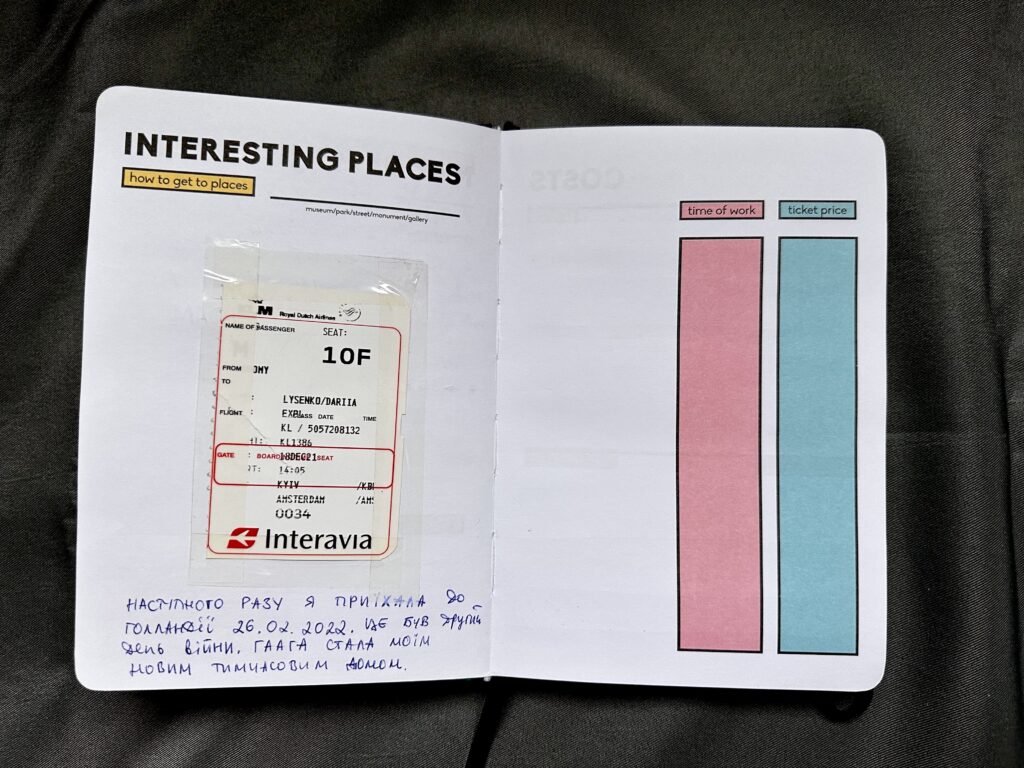 INTERESTING PLACES
how to get to places
museum/park/street/monument/gallery
M Royal Dutch Airlines
NAME OF PASSENGER SEAT:
10F
FROM OMY
TO
: LYSENKO/DARIIA
FLIGHT : EXBL CLASS DATE TIME
KL / 5057208132
: KL1386
GATE : BOARD 18DEC21 SEAT
T: 14:05
KYIV /KB
AMSTERDAM /AMS
0034
Interavia
НАСТУПНОГО РАЗУ Я ПРИЇХАЛА ДО
ГОЛЛАНДІЇ 26.02.2022. ЦЕ БУВ ДРУГИЙ
ДЕНЬ ВІЙНИ. ГААГА СТАЛА МОЇМ
НОВИМ ТИМЧАСОВИМ ДОМОМ.
COSTS
time of work
ticket price